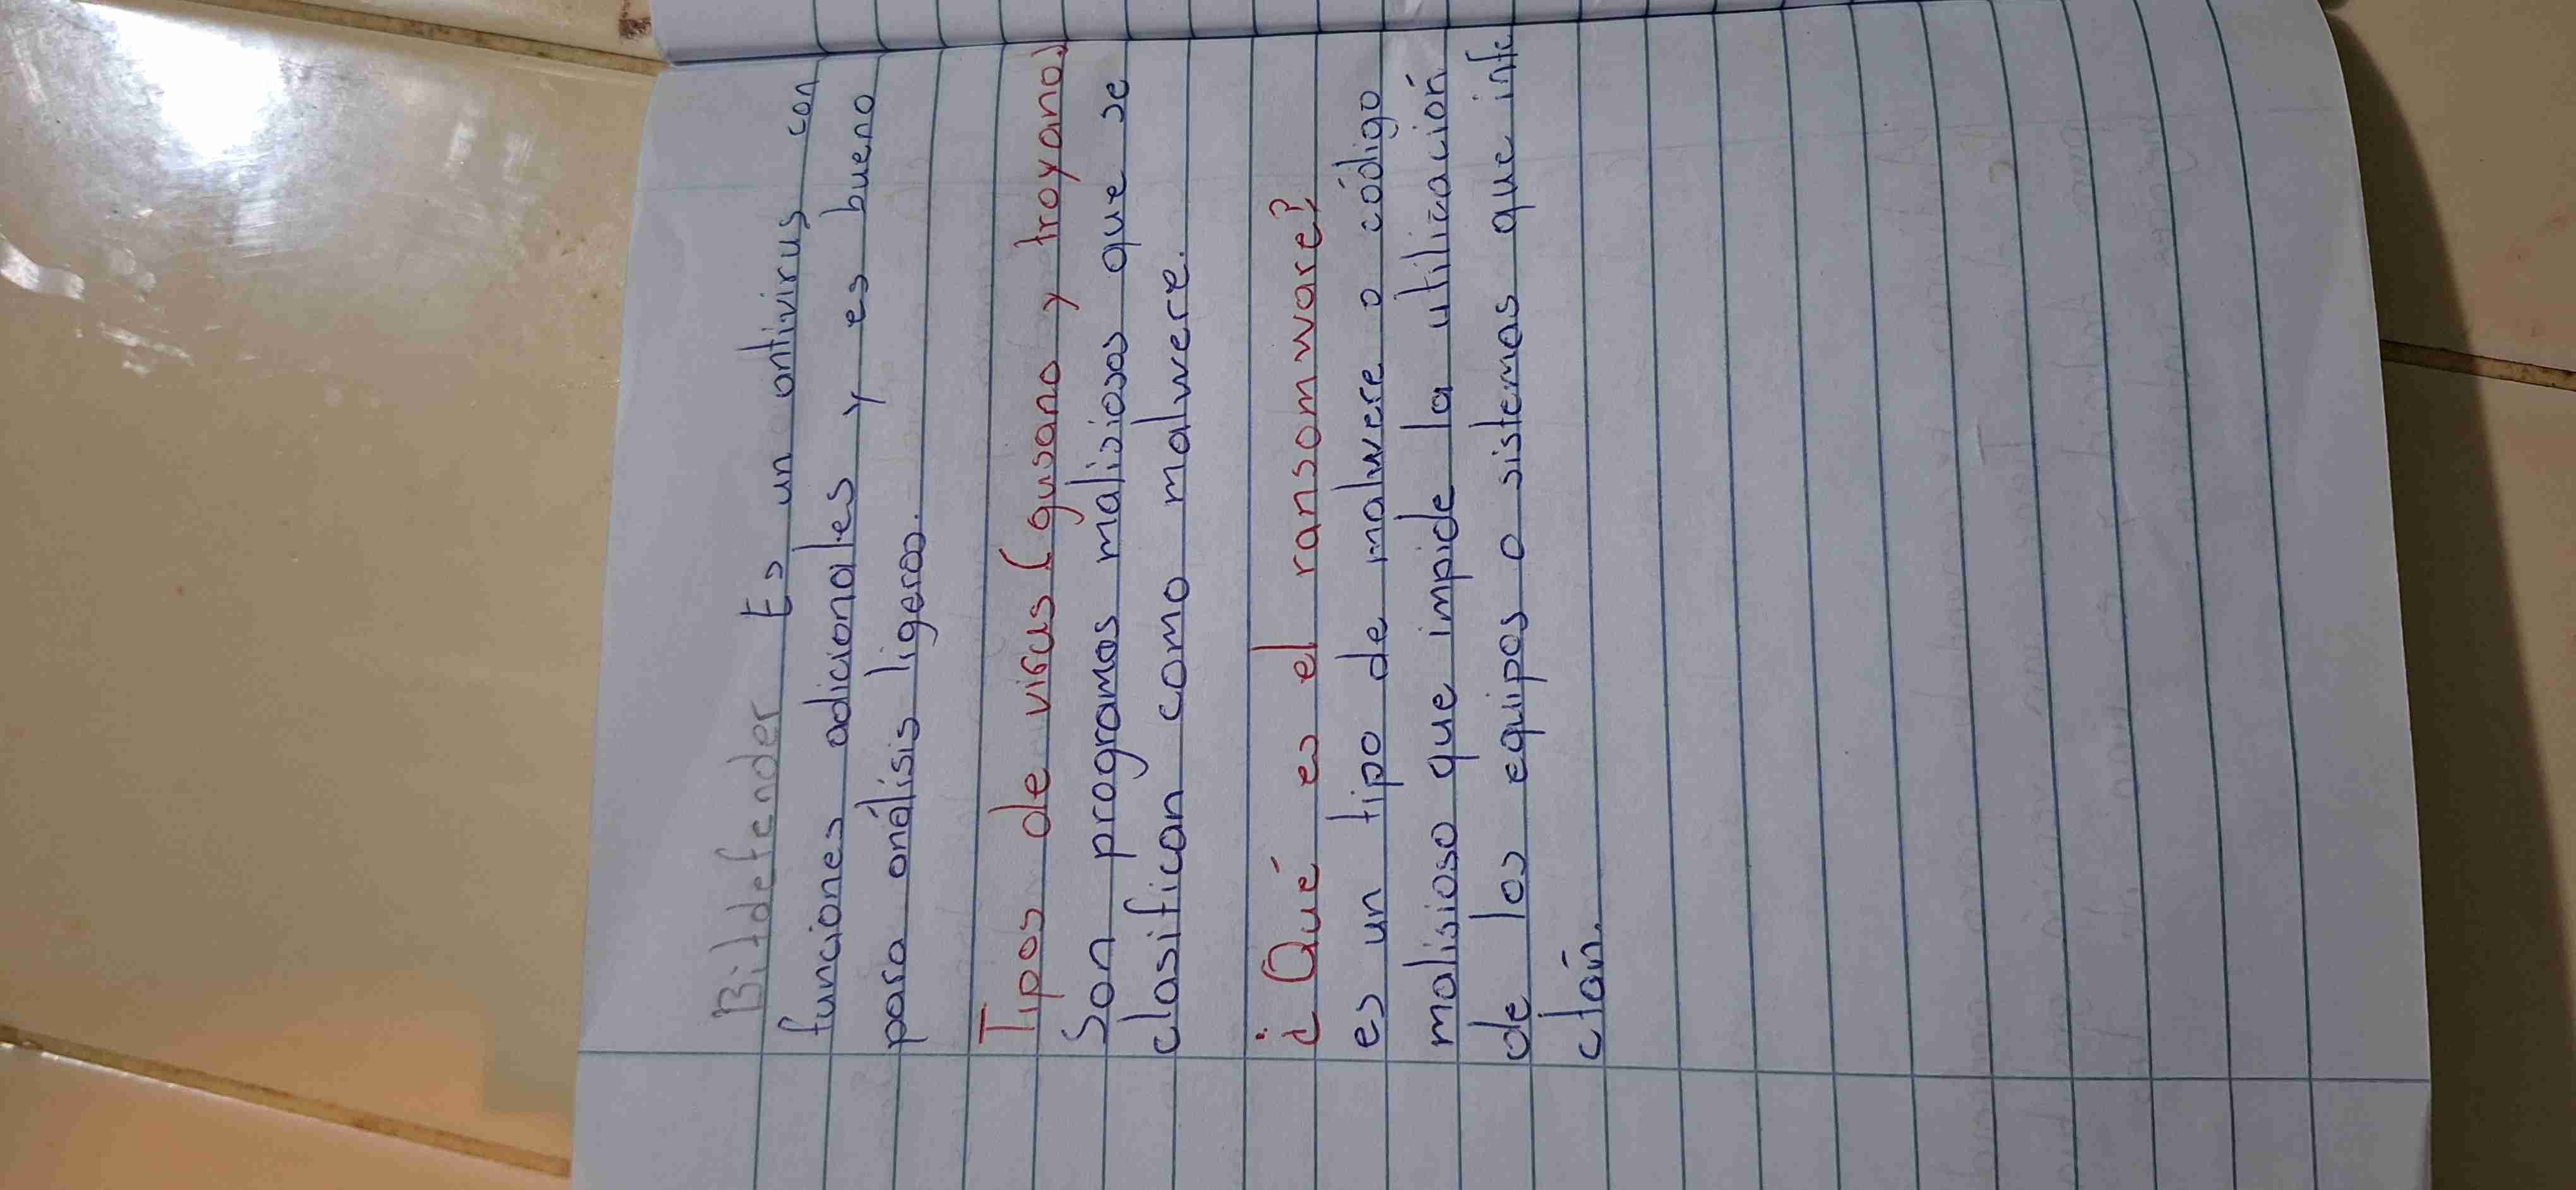 Bitdefender Es un antivirus con
funciones adicionales y es bueno
para análisis ligeros.
Tipos de virus (gusano y troyano)
Son programas malisiosos que se
clasifican como malwere.
¿Qué es el ransomware?
es un tipo de malwere o código
malisioso que impide la utilización
de los equipos o sistemas que infe
ctán.